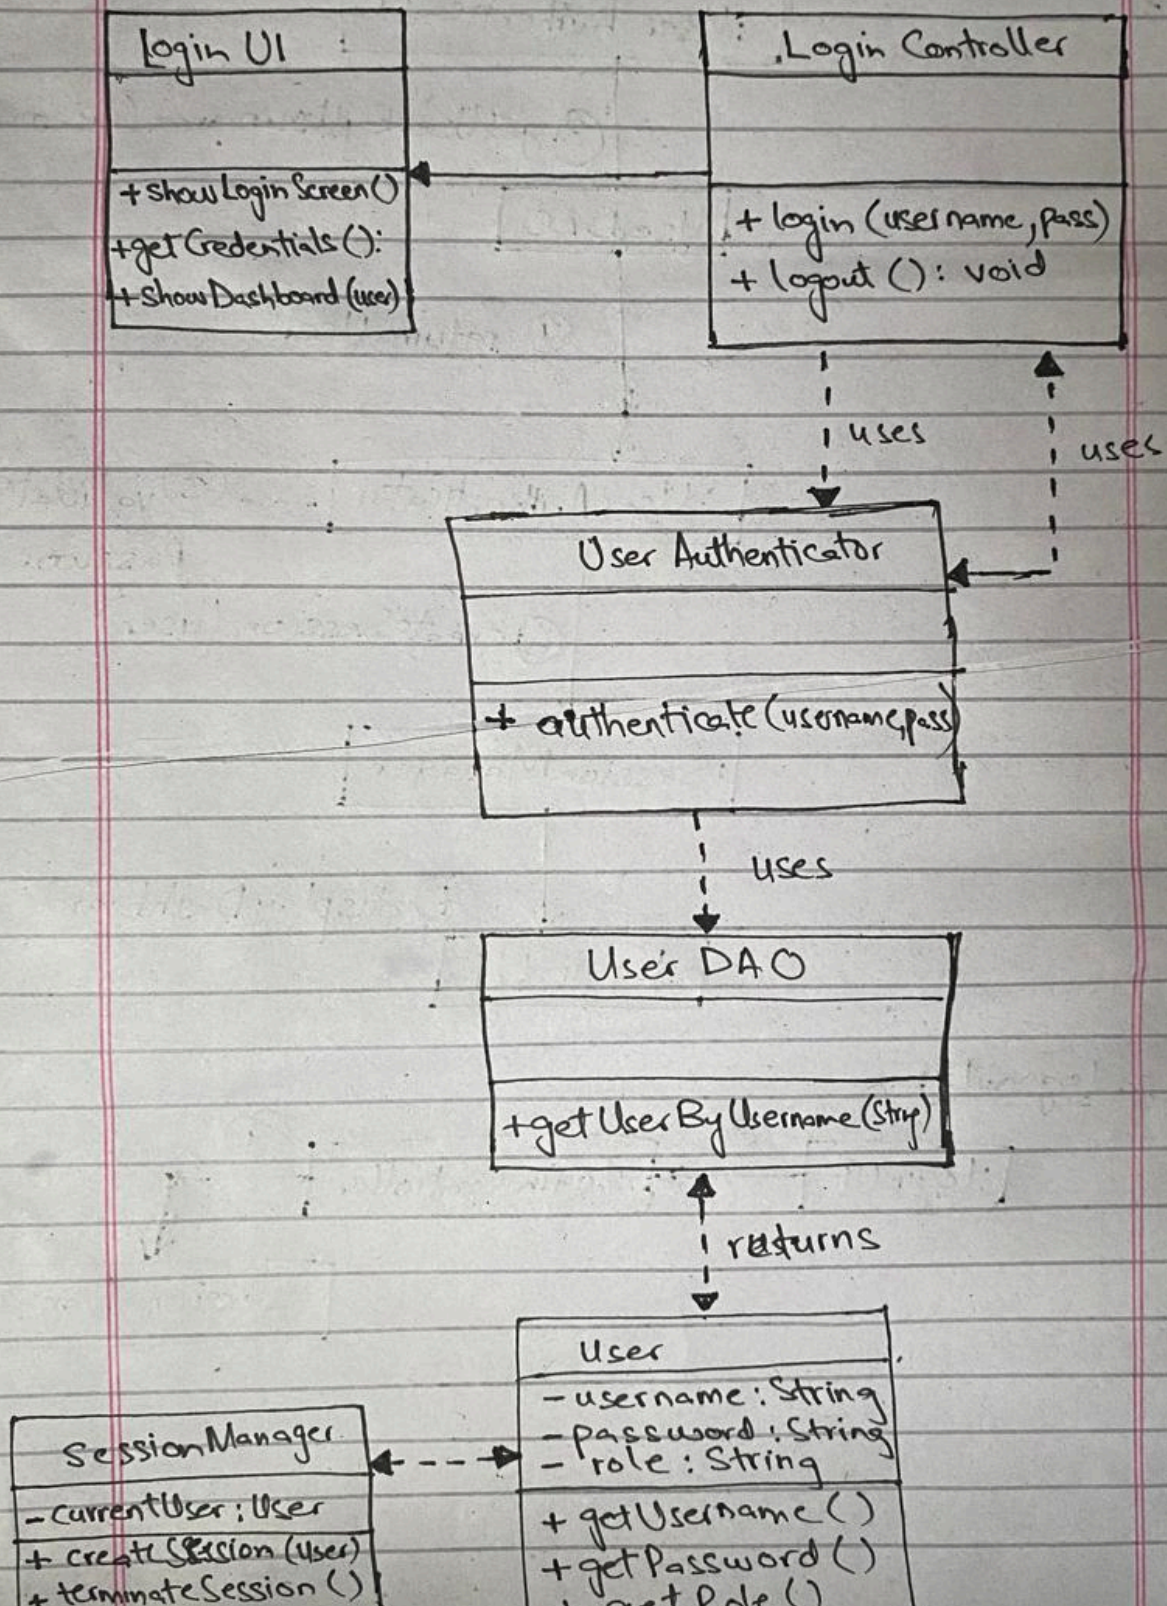 Login UI
+ showLoginScreen()
+getCredentials():
+ showDashboard(user)
Login Controller
+ login (username, pass)
+ logout (): void
uses
uses
User Authenticator
+ authenticate(username,pass)
uses
User DAO
+getUserByUsername(String)
returns
User
- username: String
- password: String
- role: String
+ getUsername()
+ getPassword()
getRole()
SessionManager
- currentUser: User
+ createSession(user)
+ terminateSession()